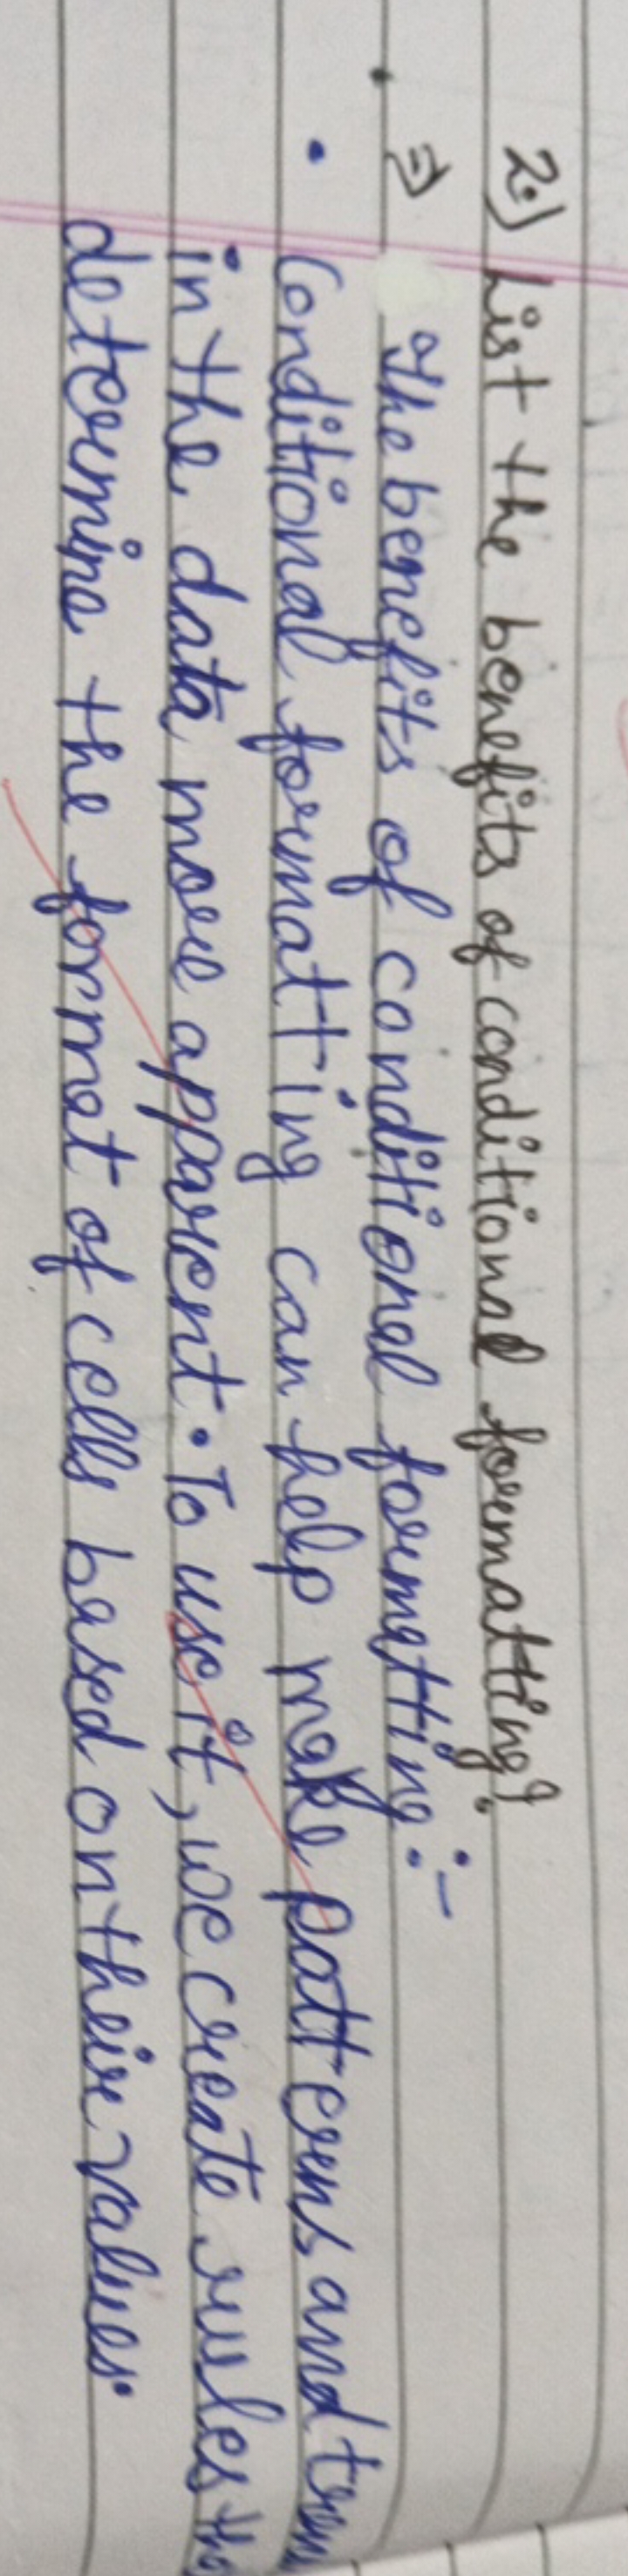 2.) List the benefits of conditional formatting?
⇒ The benefits of conditional formatting :-
• Conditional formatting can help make patterns and
in the data more apparent. To use it, we create rules
determine the format of cells based on their values.